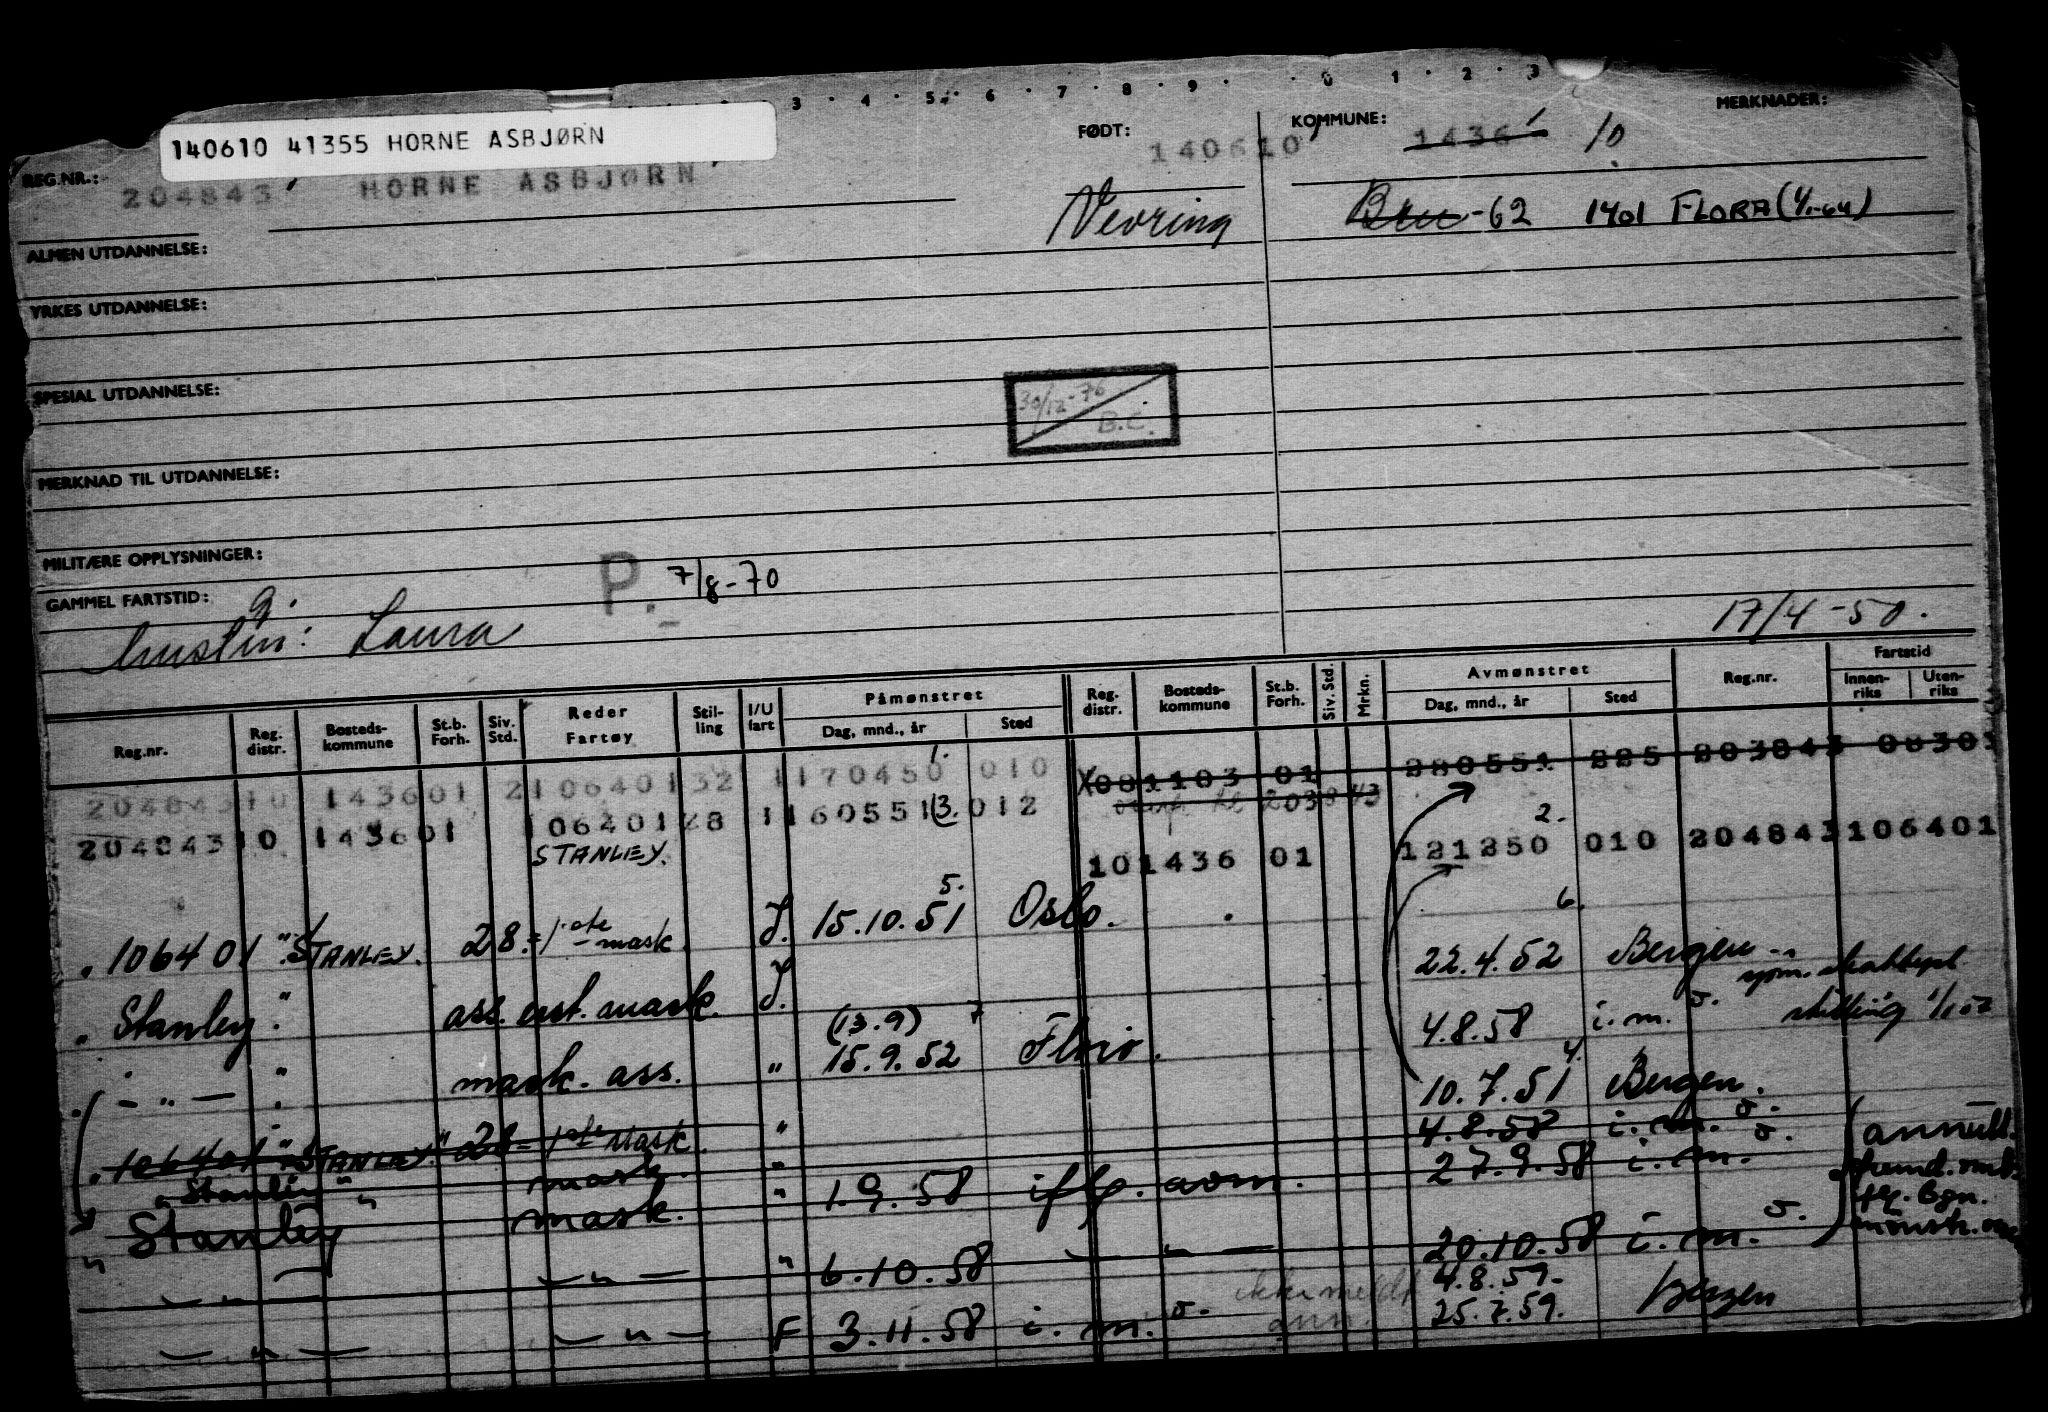 3 . 4 . 5 . 6 . 7 . 8 . 9 . . 0 1 . 2 . 3
140610 41355 HORNE ASBJØRN
FØDT: 140610
KOMMUNE: 1436 10
MERKNADER:
REG.NR.: 204843 HORNE ASBJØRN
Nevring
Bru -62 1401 FLORA (1/1-64)
ALMEN UTDANNELSE:
YRKES UTDANNELSE:
SPESIAL UTDANNELSE:
30/12-76 B.C.
MERKNAD TIL UTDANNELSE:
MILITÆRE OPPLYSNINGER:
P. 7/8-70
GAMMEL FARTSTID:
g.
hustru: Laura
17/4-50.
Reg.nr. Reg. distr. Bosteds-kommune St.b. Forh. Siv. Std. Reder Fartøy Stil-ling I/U fart Påmønstret Dag, mnd., år Sted Reg. distr. Bosteds-kommune St.b. Forh. Siv. Std. Mrkn. Avmønstret Dag, mnd., år Sted Reg.nr. Fartstid Innen-riks Uten-riks
204843 10 1436 01 2 106401 32 1 170450 1. 010 X 081103 01 280551 225 203843 08303
204843 10 1436 01 106401 28 1 160551 (3. 012 203843
STANLEY. 10 1436 01 121250 2. 010 204843 106401
" 106401 " STANLEY. 28 = 1ste mask J. 15.10.51 5. Oslo. 22.4.52 6. Bergen
" Stanley " ass. ent. mask. J. 4.8.58 i.m. σ. stilling 1/1.52
- " - " mask. ass. " (13.9) 15.9.52 7 Florø. 10.7.51 4. Bergen.
" 106401 " STANLEY " 28 = 1ste mask. " 4.8.58 i.m. σ. annull.
" Stanley " mask. " 27.9.58 i.m. σ.
" Stanley " mask. " 1.9.58 iflg. avm. Bgn.
- " - - " - " 6.10.58 - " - 20.10.58 i.m. σ. mønstr.
- " - - " - F 3.11.58 i.m. σ. ikke meldt ann. 4.8.59. 25.7.59. Bergen